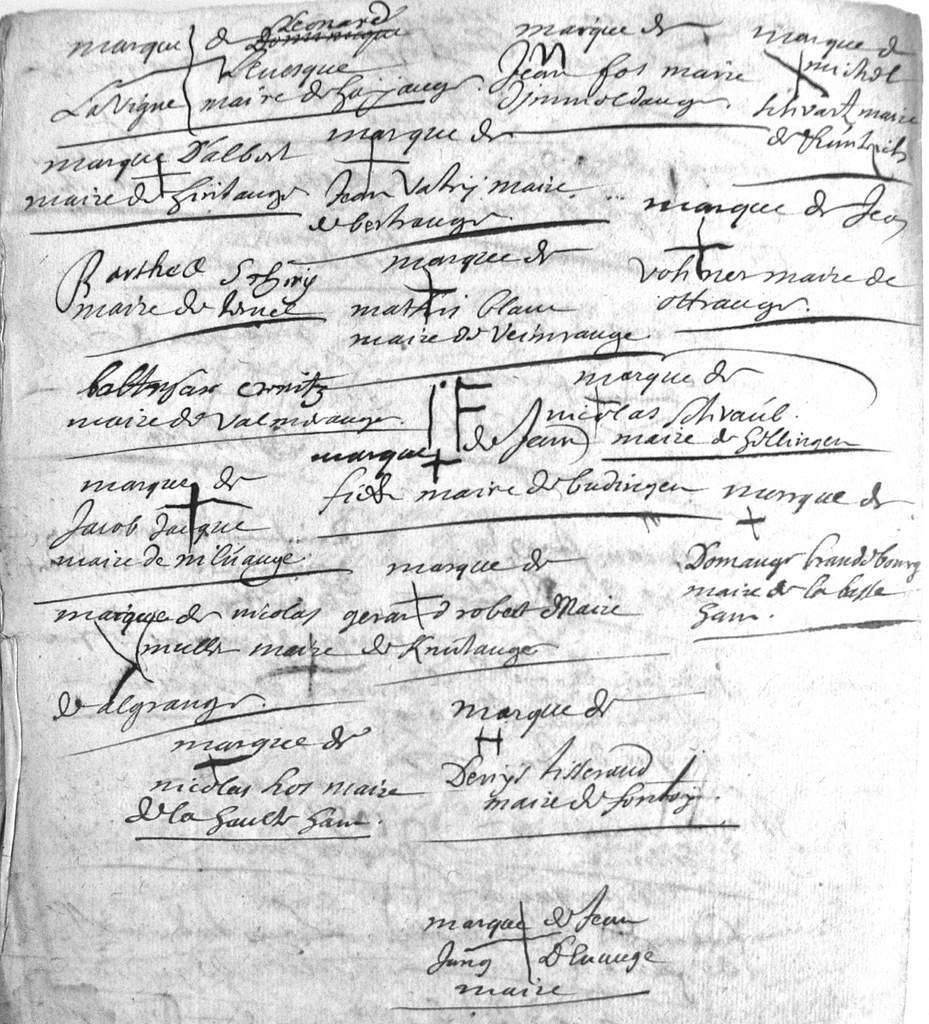 marque de Leonard Dominique
Levesque
La Vigne maire de hajange
marque de
Jean fos maire
d'immeldange
marque de
michel
schvartz maire
de
marque D'albert
maire de hintange
marque de
Jean Vatrij maire
de bertrange
marque de Jean
vohner maire de
ottrange
Barthel
maire de
marque de
mathis blam
maire de Veimrange
balthasar
maire de valmerange
marque de
nicolas schvaub
maire de hillingen
marque de Jean
maire de budingen
marque de
Jacob Jacque
maire de nilvange
marque de
gerard robert Maire
de Knutange
marque de
Domange brandebourg
maire de la basse
ham
marque de nicolas
muller maire
d'algrange
marque de
nicolas hos maire
de la haulte ham
marque de
Denys tisserand
maire de fontoy
marque de Jean
Jung D'Evange
maire